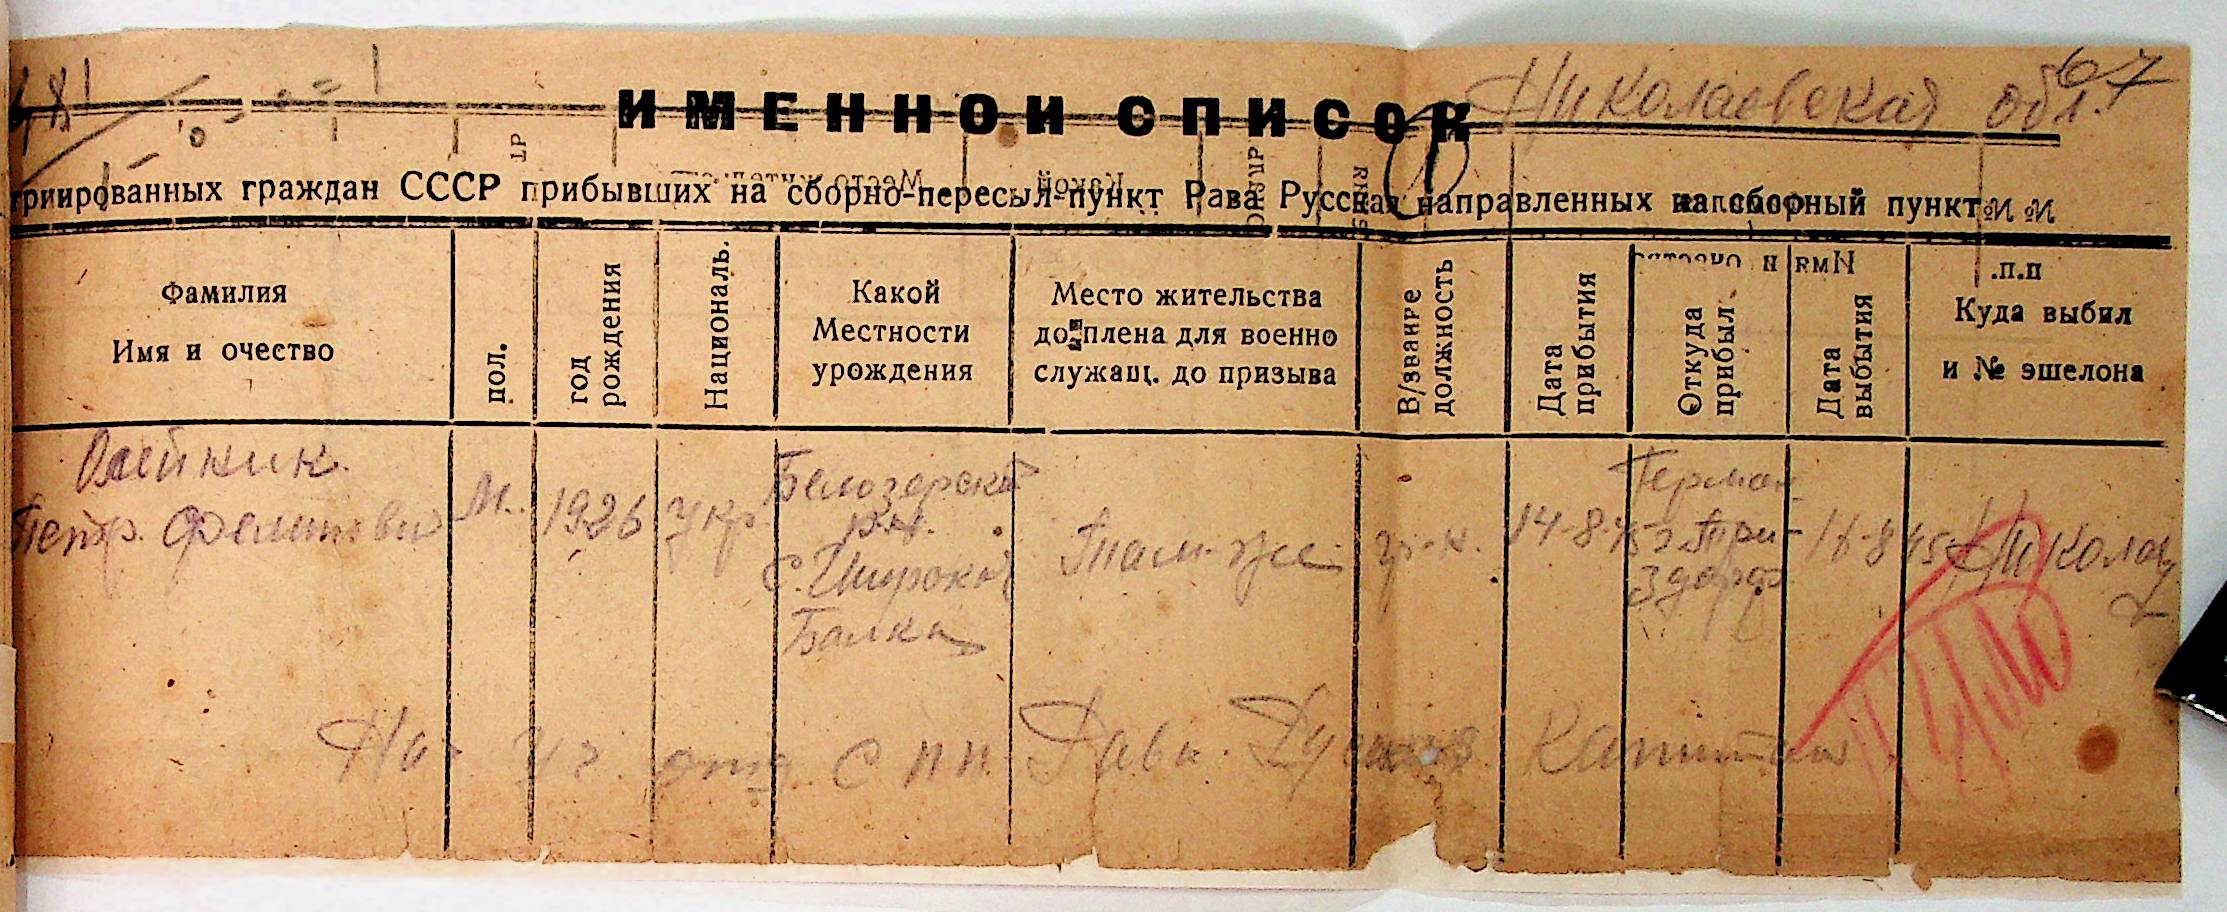 67
Николаевская обл.
ИМЕННОЙ СПИСОК
триированных граждан СССР прибывших на сборно-пересыл-пункт Рава Русская направленных на сборный пункт
Фамилия
Имя и очество
пол.
год
рождения
Националь.
Какой
Местности
урождения
Место жительства
до плена для военно
служащ. до призыва
В/звание
должность
Дата
прибытия
Откуда
прибыл.
Дата
выбытия
Куда выбил
и № эшелона
Олейник
Петр
М.
1926
Укр.
Белозерский
р-н.
с. Широкая
Балка
Там-же
гр-н.
14-8-45
Герман.
16-8-45
Николаев
Нач. уч. отд. СПП Рава-Русская Капитан